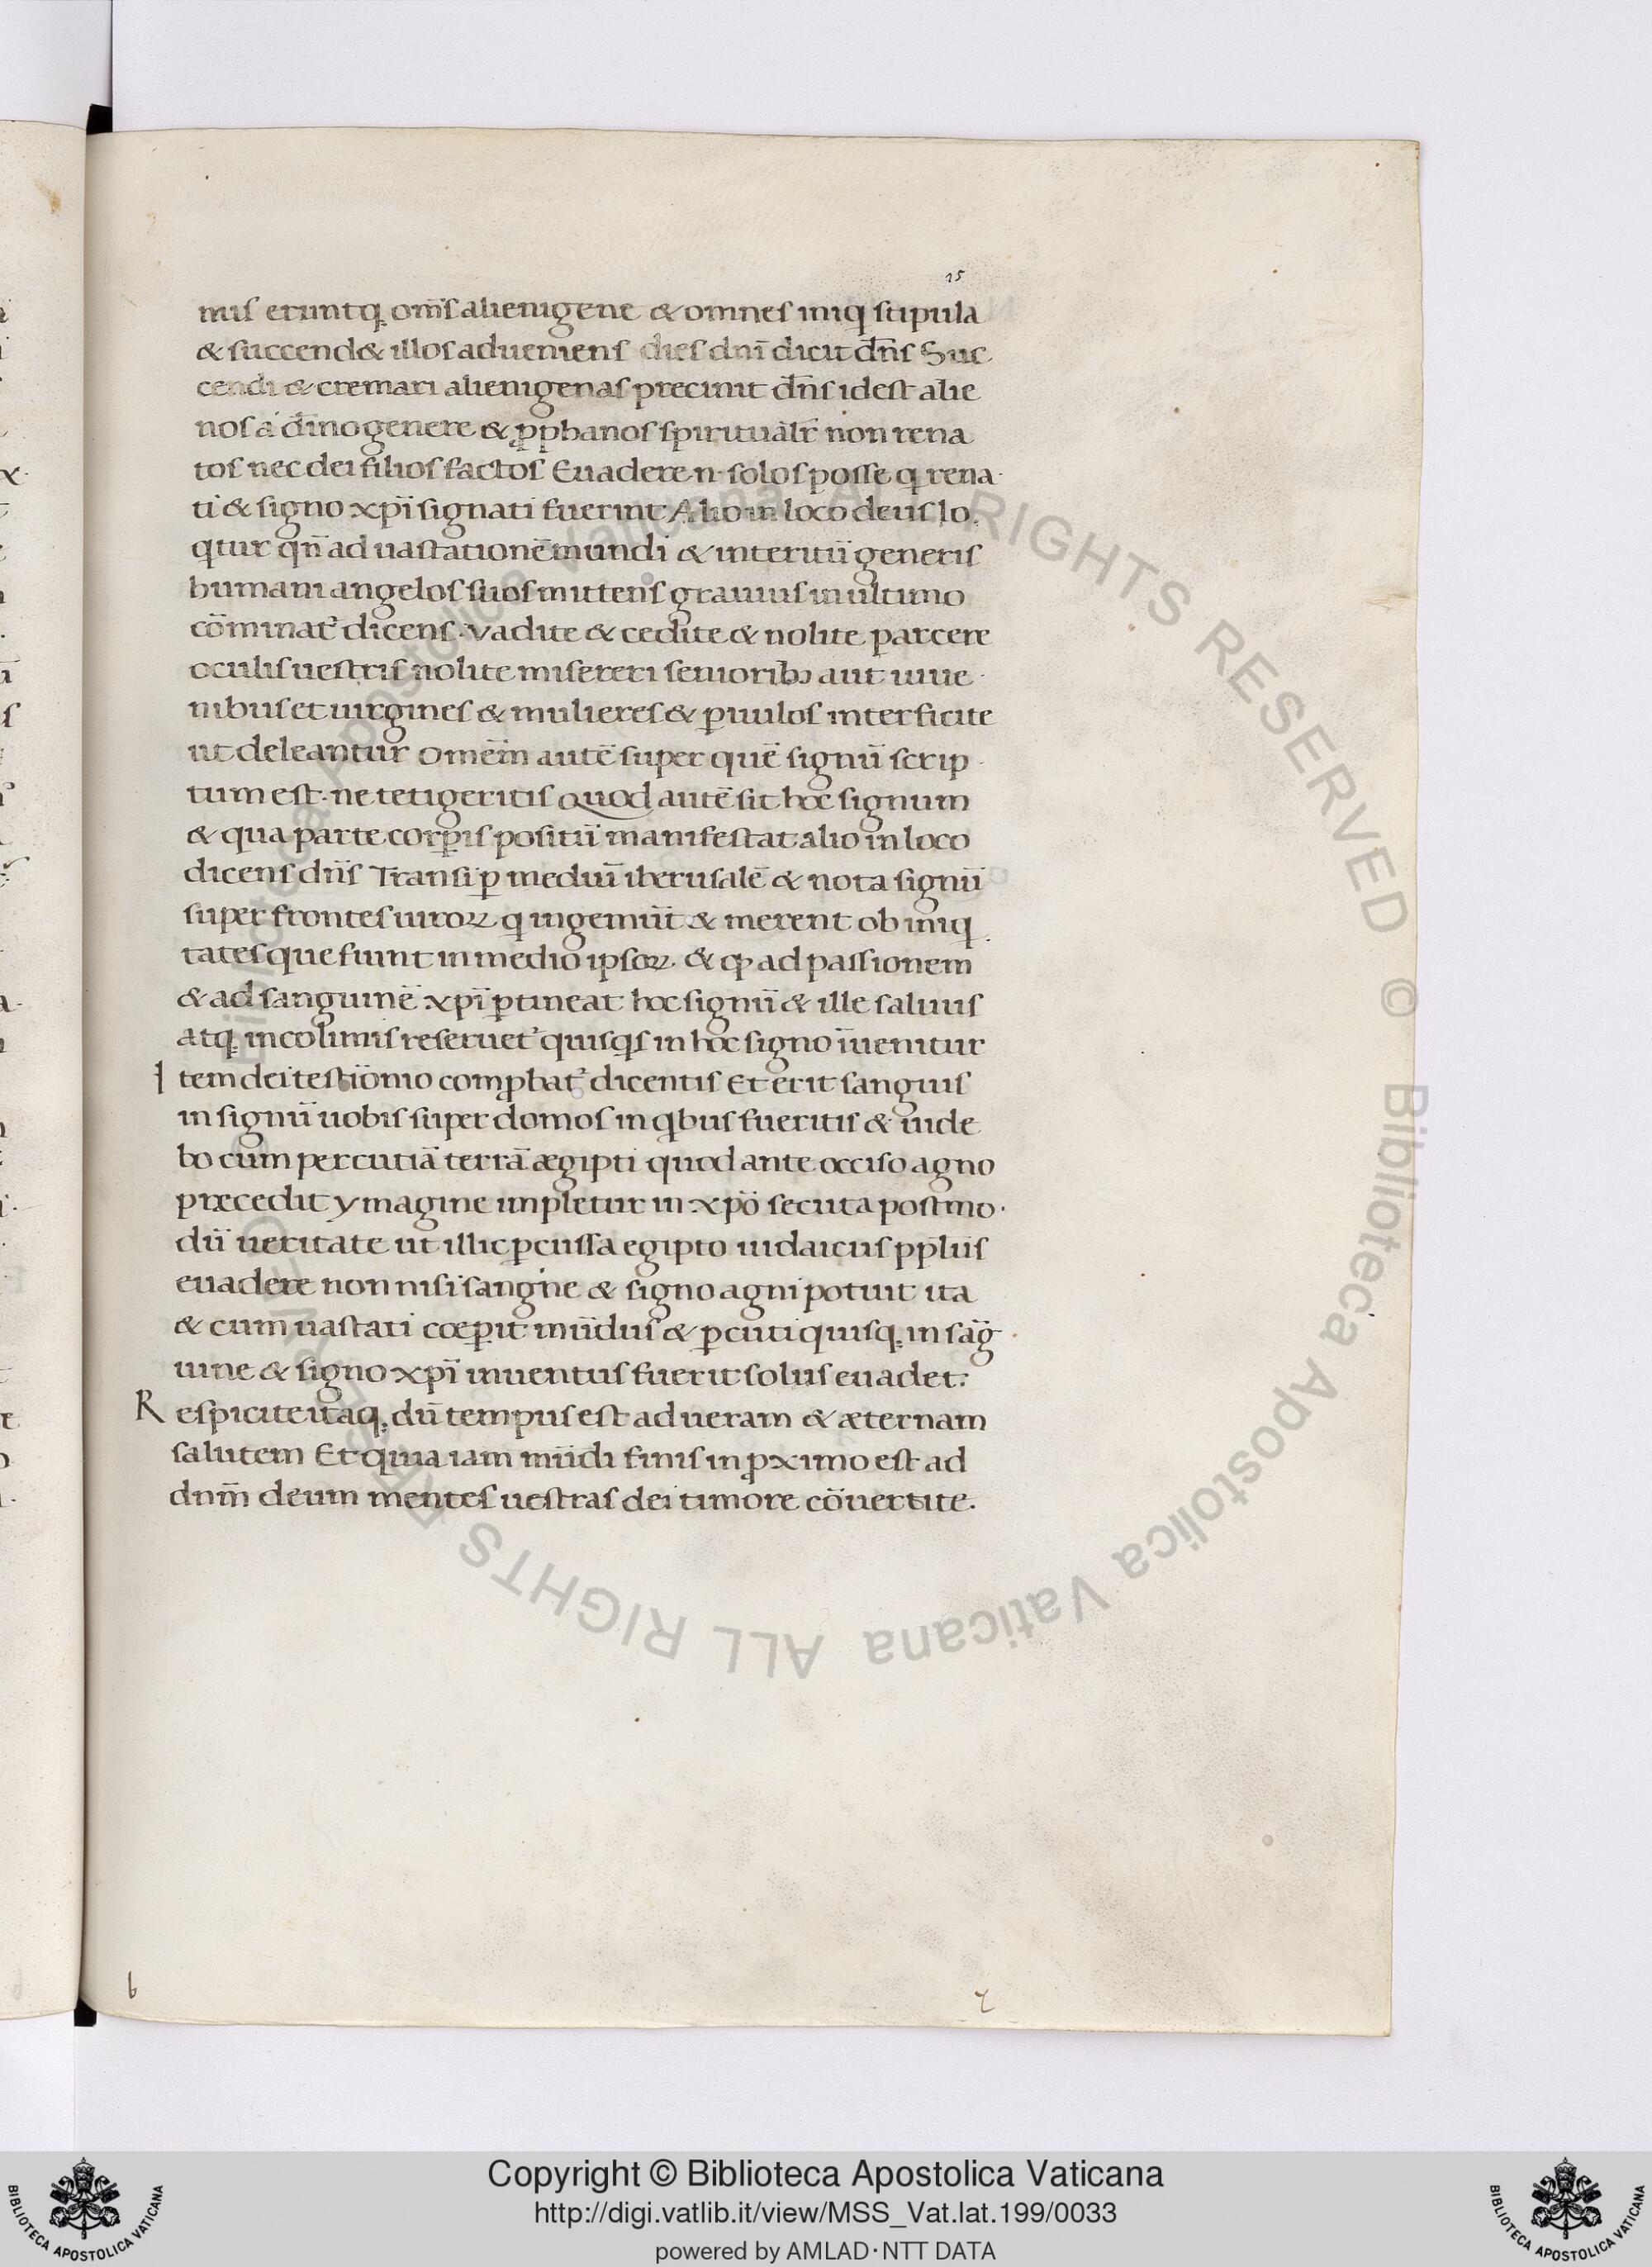 15
nus eruntq; om̄s alienigene & omnes iniq stipula
& succend& illos adueniens dies dnī dicit dn̄s Suc
cendi & cremari alienigenas precinit dn̄s idest alie
nos a diuino genere & ꝓphanos spiritualr̄ non rena
tos nec dei filios factos Euadere n· solos posse q rena·
ti & signo xp̄i signati fuerint Alio in loco deus lo·
qtur qn̄ ad uastationē mundi & interitū generis
humani angelos suos mittens grauius in ultimo
cōminat᷑ dicens· Vadite & cedite & nolite parcere
oculis uestris nolite misereri seniorib; aut iuue·
nibus et uirgines & mulieres & ꝑuulos interficite
ut deleantur Omēm autē super quē signū scrip·
tum est· ne tetigeritis Quod autē sit hoc signum
& qua parte corꝑis positū manifestat alio in loco
dicens dn̄s Transi ꝑ mediū iherusalē & nota signū
super frontes uiroꝝ q ingemūt & merent ob iniq
tates que fiunt in medio ipsoꝝ· & ꝙ ad passionem
& ad sanguinē xp̄i ꝑtineat hoc signū & ille saluus
atq; incolumis reseruet᷑ quisqs in hoc signo īuenitur
Item dei testiōnio comꝓbat᷑ dicentis Et erit sanguis
in signū uobis super domos in qbus fueritis & uide
bo cum percutiā terrā ægipti quod ante occiso agno
præcedit ymagine impletur in xp̄o secuta postmo·
dū ueritate ut illic ꝑcussa egipto iudaicus pplūs
euadere non nisi sangne & signo agni potuit ita
& cum uastari cœperit mūdus & ꝑcuti quisq; in sāg·
uine & signo xp̄i inuentus fuerit solus euadet:
Respicite itaq; dū tempus est ad ueram & æternam
salutem Et quia iam mūdi finis in ꝓximo est ad
dnm̄ deum mentes uestras dei timore cōuertite.
b
Biblioteca Apostolica Vaticana ALL RIGHTS RESERVED © Biblioteca Apostolica Vaticana ALL RIGHTS RESERVED ©
Copyright © Biblioteca Apostolica Vaticana
http://digi.vatlib.it/view/MSS_Vat.lat.199/0033
powered by AMLAD·NTT DATA
BIBLIOTECA APOSTOLICA VATICANA
BIBLIOTECA APOSTOLICA VATICANA